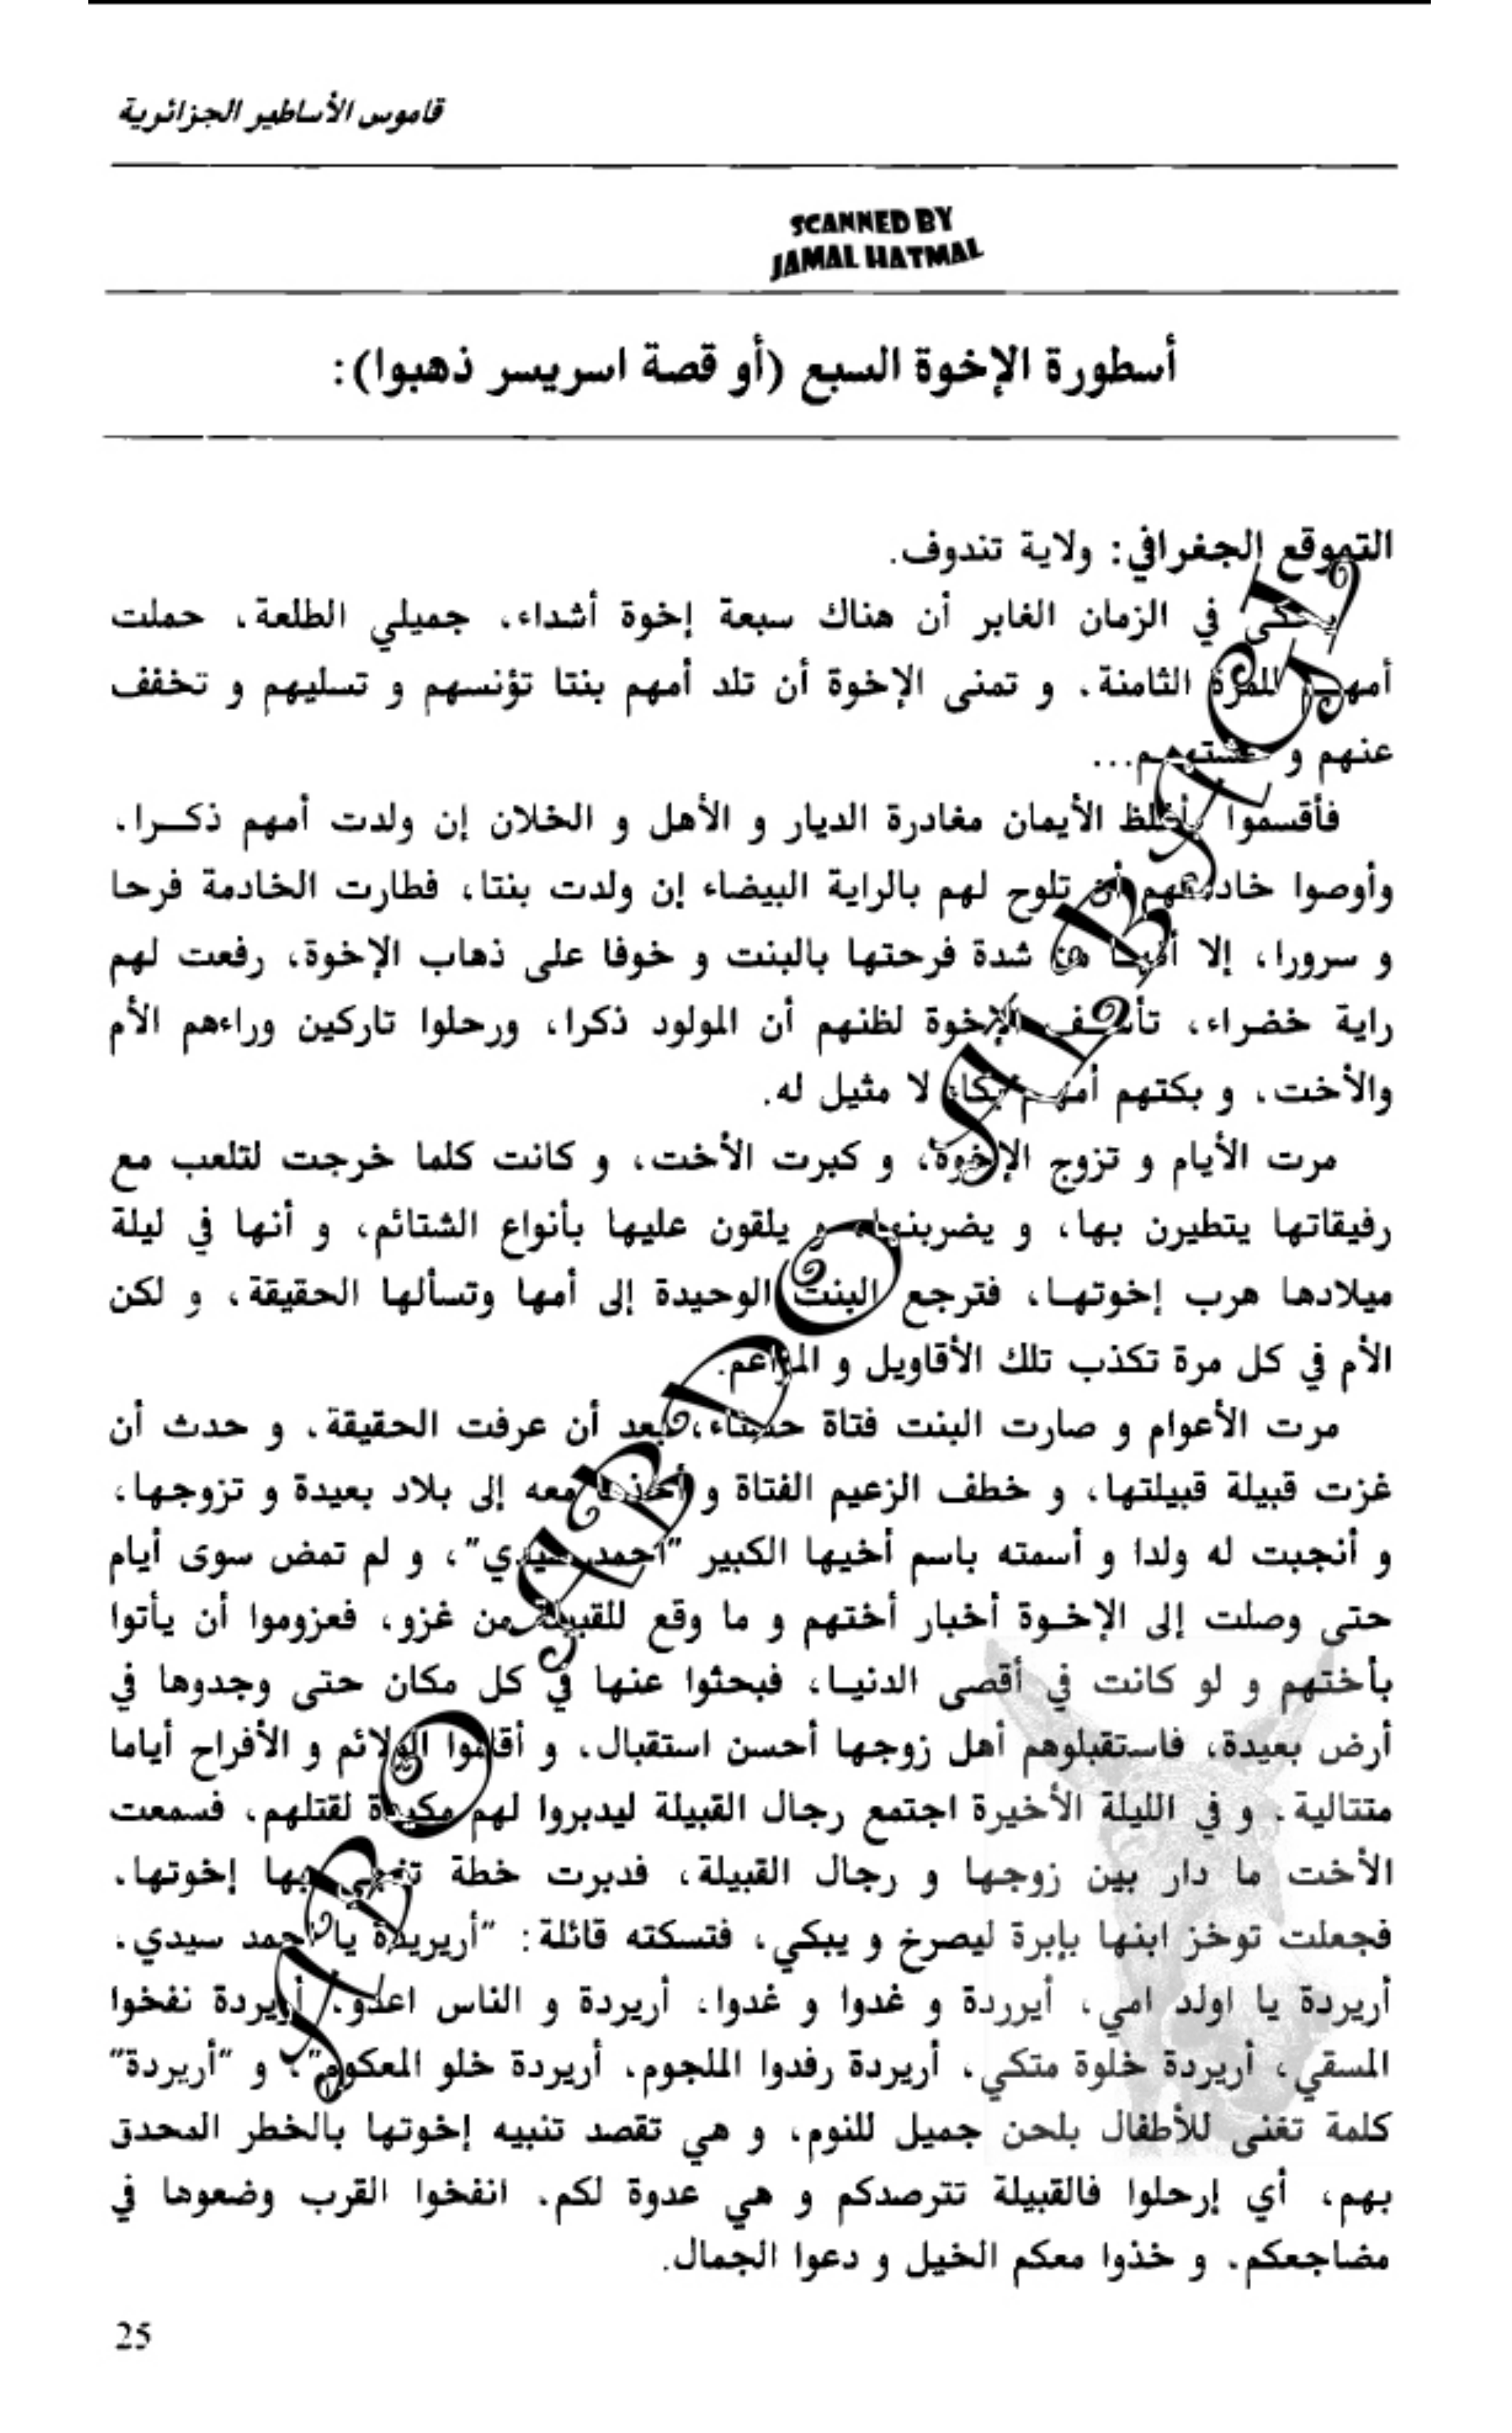 قاموس الأساطير الجزائرية
SCANNED BY
JAMAL HATMAL
أسطورة الإخوة السبع (أو قصة اسريسر ذهبوا):
التموقع الجغرافي: ولاية تندوف.
يحكى في الزمان الغابر أن هناك سبعة إخوة أشداء، جميلي الطلعة، حملت
أمهم للمرة الثامنة. و تمنى الإخوة أن تلد أمهم بنتا تؤنسهم و تسليهم و تخفف
عنهم و حشتهم...
فأقسموا بأغلظ الأيمان مغادرة الديار و الأهل و الخلان إن ولدت أمهم ذكـرا.
وأوصوا خادمتهم أن تلوح لهم بالراية البيضاء إن ولدت بنتا، فطارت الخادمة فرحا
و سرورا، إلا أنها من شدة فرحتها بالبنت و خوفا على ذهاب الإخوة، رفعت لهم
راية خضراء، تأسف الإخوة لظنهم أن المولود ذكرا، ورحلوا تاركين وراءهم الأم
والأخت، و بكتهم أمهم بكاء لا مثيل له.
مرت الأيام و تزوج الإخوة، و كبرت الأخت، و كانت كلما خرجت لتلعب مع
رفيقاتها يتطيرن بها، و يضربنها، و يلقون عليها بأنواع الشتائم، و أنها في ليلة
ميلادها هرب إخوتهـا، فترجع البنت الوحيدة إلى أمها وتسألها الحقيقة، و لكن
الأم في كل مرة تكذب تلك الأقاويل و المزاعم.
مرت الأعوام و صارت البنت فتاة حسناء، بعد أن عرفت الحقيقة، و حدث أن
غزت قبيلة قبيلتها، و خطف الزعيم الفتاة و أخذها معه إلى بلاد بعيدة و تزوجها،
و أنجبت له ولدا و أسمته باسم أخيها الكبير "احمد سيدي"، و لم تمض سوى أيام
حتى وصلت إلى الإخـوة أخبار أختهم و ما وقع للقبيلة من غزو، فعزوموا أن يأتوا
بأختهم و لو كانت في أقصى الدنيـا، فبحثوا عنها في كل مكان حتى وجدوها في
أرض بعيدة، فاستقبلوهم أهل زوجها أحسن استقبال، و أقاموا الولائم و الأفراح أياما
متتالية. و في الليلة الأخيرة اجتمع رجال القبيلة ليدبروا لهم مكيدة لقتلهم، فسمعت
الأخت ما دار بين زوجها و رجال القبيلة، فدبرت خطة تنجي بها إخوتها.
فجعلت توخز ابنها بإبرة ليصرخ و يبكي، فتسكته قائلة: "أريريدة يا احمد سيدي.
أريردة يا اولد امي، أيرردة و غدوا و غدوا، أريردة و الناس اعدو. أريردة نفخوا
المسقي، أريردة خلوة متكي، أريردة رفدوا الملجوم، أريردة خلو المعكوم"، و "أريردة"
كلمة تغنى للأطفال بلحن جميل للنوم، و هي تقصد تنبيه إخوتها بالخطر المحدق
بهم، أي إرحلوا فالقبيلة تترصدكم و هي عدوة لكم. انفخوا القرب وضعوها في
مضاجعكم. و خذوا معكم الخيل و دعوا الجمال.
25